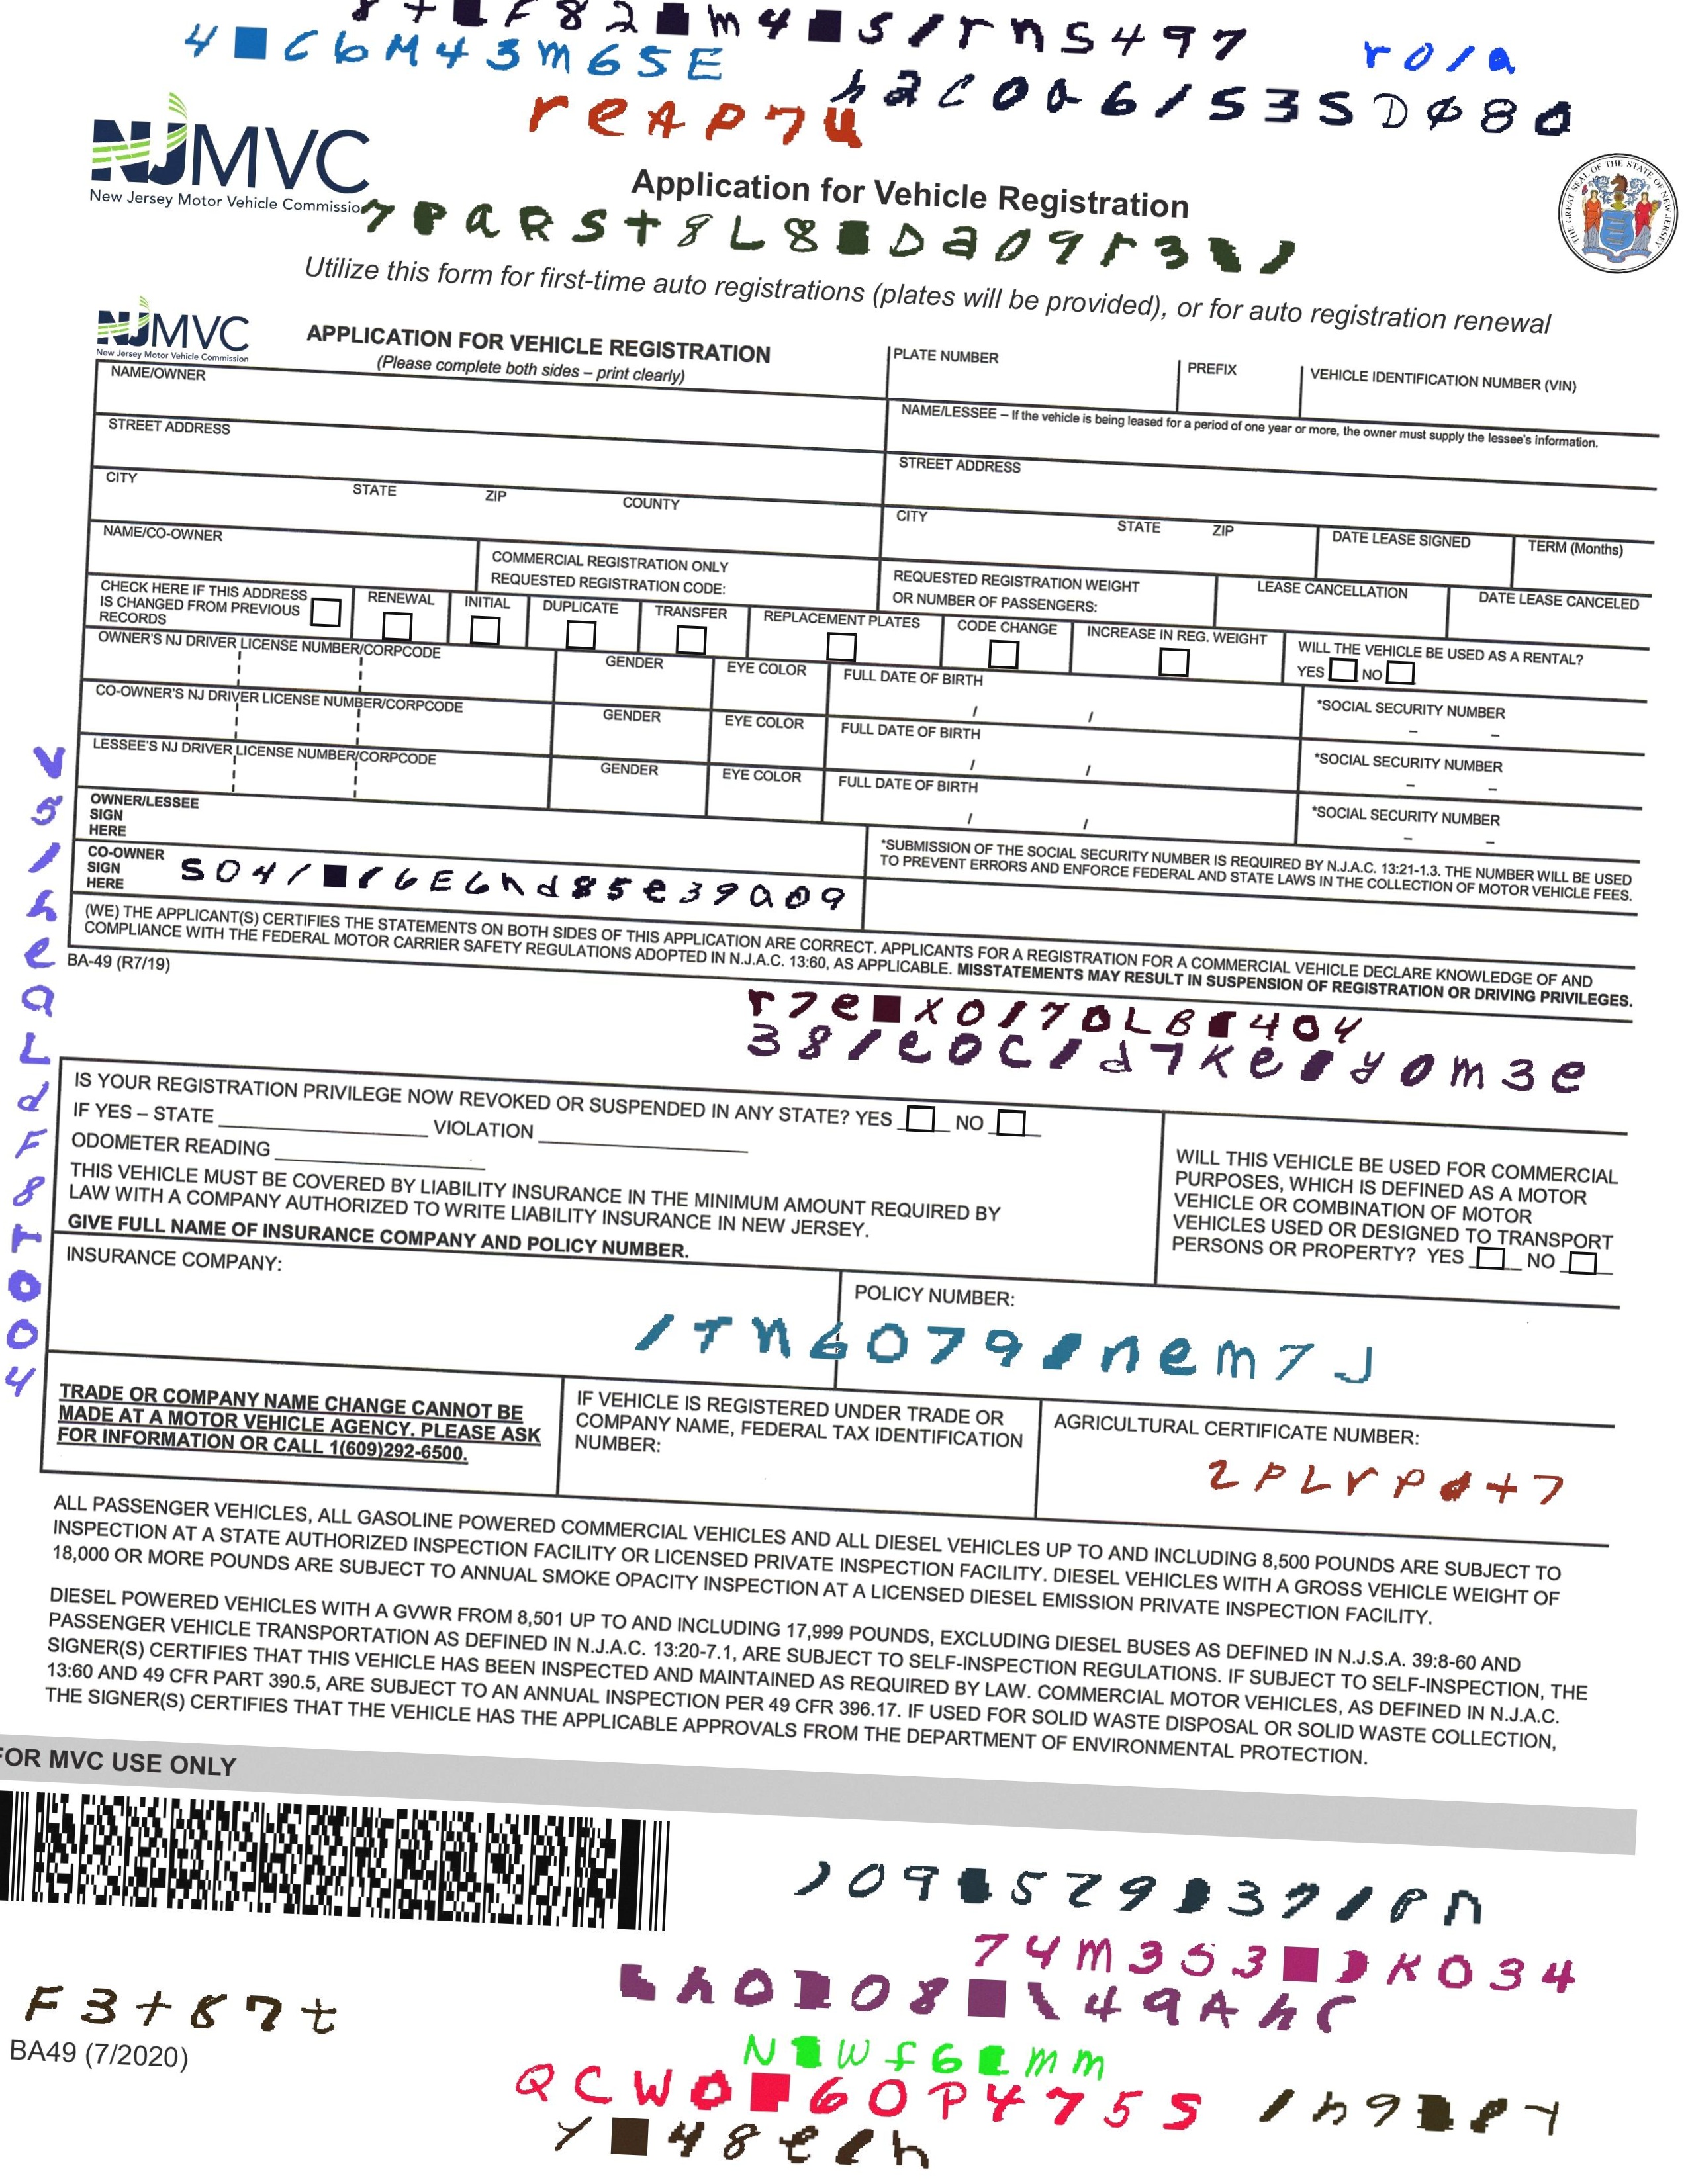 rola
reAP74
NJMVC
New Jersey Motor Vehicle Commission
Application for Vehicle Registration
Utilize this form for first-time auto registrations (plates will be provided), or for auto registration renewal
NJMVC
New Jersey Motor Vehicle Commission
APPLICATION FOR VEHICLE REGISTRATION
(Please complete both sides – print clearly)
PLATE NUMBER
PREFIX
VEHICLE IDENTIFICATION NUMBER (VIN)
NAME/OWNER
NAME/LESSEE – If the vehicle is being leased for a period of one year or more, the owner must supply the lessee's information.
STREET ADDRESS
STREET ADDRESS
CITY STATE ZIP COUNTY
CITY STATE ZIP
DATE LEASE SIGNED
TERM (Months)
NAME/CO-OWNER
COMMERCIAL REGISTRATION ONLY
REQUESTED REGISTRATION CODE:
REQUESTED REGISTRATION WEIGHT
OR NUMBER OF PASSENGERS:
LEASE CANCELLATION
DATE LEASE CANCELED
CHECK HERE IF THIS ADDRESS
IS CHANGED FROM PREVIOUS
RECORDS
RENEWAL
INITIAL
DUPLICATE
TRANSFER
REPLACEMENT PLATES
CODE CHANGE
INCREASE IN REG. WEIGHT
WILL THE VEHICLE BE USED AS A RENTAL?
YES NO
OWNER'S NJ DRIVER LICENSE NUMBER/CORPCODE
GENDER
EYE COLOR
FULL DATE OF BIRTH
/ /
*SOCIAL SECURITY NUMBER
– –
CO-OWNER'S NJ DRIVER LICENSE NUMBER/CORPCODE
GENDER
EYE COLOR
FULL DATE OF BIRTH
/ /
*SOCIAL SECURITY NUMBER
– –
LESSEE'S NJ DRIVER LICENSE NUMBER/CORPCODE
GENDER
EYE COLOR
FULL DATE OF BIRTH
/ /
*SOCIAL SECURITY NUMBER
– –
OWNER/LESSEE
SIGN
HERE
*SUBMISSION OF THE SOCIAL SECURITY NUMBER IS REQUIRED BY N.J.A.C. 13:21-1.3. THE NUMBER WILL BE USED
TO PREVENT ERRORS AND ENFORCE FEDERAL AND STATE LAWS IN THE COLLECTION OF MOTOR VEHICLE FEES.
CO-OWNER
SIGN
HERE
(WE) THE APPLICANT(S) CERTIFIES THE STATEMENTS ON BOTH SIDES OF THIS APPLICATION ARE CORRECT. APPLICANTS FOR A REGISTRATION FOR A COMMERCIAL VEHICLE DECLARE KNOWLEDGE OF AND
COMPLIANCE WITH THE FEDERAL MOTOR CARRIER SAFETY REGULATIONS ADOPTED IN N.J.A.C. 13:60, AS APPLICABLE. MISSTATEMENTS MAY RESULT IN SUSPENSION OF REGISTRATION OR DRIVING PRIVILEGES.
BA-49 (R7/19)
IS YOUR REGISTRATION PRIVILEGE NOW REVOKED OR SUSPENDED IN ANY STATE? YES NO
IF YES – STATE VIOLATION
ODOMETER READING
THIS VEHICLE MUST BE COVERED BY LIABILITY INSURANCE IN THE MINIMUM AMOUNT REQUIRED BY
LAW WITH A COMPANY AUTHORIZED TO WRITE LIABILITY INSURANCE IN NEW JERSEY.
GIVE FULL NAME OF INSURANCE COMPANY AND POLICY NUMBER.
WILL THIS VEHICLE BE USED FOR COMMERCIAL
PURPOSES, WHICH IS DEFINED AS A MOTOR
VEHICLE OR COMBINATION OF MOTOR
VEHICLES USED OR DESIGNED TO TRANSPORT
PERSONS OR PROPERTY? YES NO
INSURANCE COMPANY:
POLICY NUMBER:
TRADE OR COMPANY NAME CHANGE CANNOT BE
MADE AT A MOTOR VEHICLE AGENCY. PLEASE ASK
FOR INFORMATION OR CALL 1(609)292-6500.
IF VEHICLE IS REGISTERED UNDER TRADE OR
COMPANY NAME, FEDERAL TAX IDENTIFICATION
NUMBER:
AGRICULTURAL CERTIFICATE NUMBER:
ALL PASSENGER VEHICLES, ALL GASOLINE POWERED COMMERCIAL VEHICLES AND ALL DIESEL VEHICLES UP TO AND INCLUDING 8,500 POUNDS ARE SUBJECT TO
INSPECTION AT A STATE AUTHORIZED INSPECTION FACILITY OR LICENSED PRIVATE INSPECTION FACILITY. DIESEL VEHICLES WITH A GROSS VEHICLE WEIGHT OF
18,000 OR MORE POUNDS ARE SUBJECT TO ANNUAL SMOKE OPACITY INSPECTION AT A LICENSED DIESEL EMISSION PRIVATE INSPECTION FACILITY.
DIESEL POWERED VEHICLES WITH A GVWR FROM 8,501 UP TO AND INCLUDING 17,999 POUNDS, EXCLUDING DIESEL BUSES AS DEFINED IN N.J.S.A. 39:8-60 AND
PASSENGER VEHICLE TRANSPORTATION AS DEFINED IN N.J.A.C. 13:20-7.1, ARE SUBJECT TO SELF-INSPECTION REGULATIONS. IF SUBJECT TO SELF-INSPECTION, THE
SIGNER(S) CERTIFIES THAT THIS VEHICLE HAS BEEN INSPECTED AND MAINTAINED AS REQUIRED BY LAW. COMMERCIAL MOTOR VEHICLES, AS DEFINED IN N.J.A.C.
13:60 AND 49 CFR PART 390.5, ARE SUBJECT TO AN ANNUAL INSPECTION PER 49 CFR 396.17. IF USED FOR SOLID WASTE DISPOSAL OR SOLID WASTE COLLECTION,
THE SIGNER(S) CERTIFIES THAT THE VEHICLE HAS THE APPLICABLE APPROVALS FROM THE DEPARTMENT OF ENVIRONMENTAL PROTECTION.
FOR MVC USE ONLY
F3+87t
BA49 (7/2020)